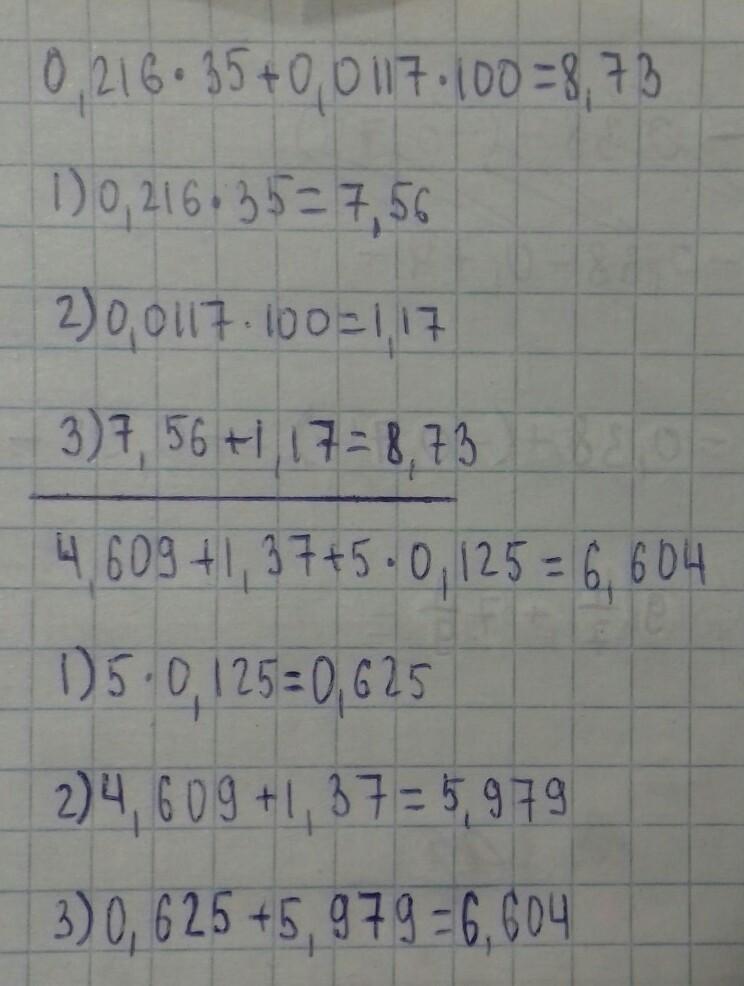 0,216·35+0,0117·100=8,73
1)0,216·35=7,56
2)0,0117·100=1,17
3)7,56+1,17=8,73
4,609+1,37+5·0,125=6,604
1)5·0,125=0,625
2)4,609+1,37=5,979
3)0,625+5,979=6,604